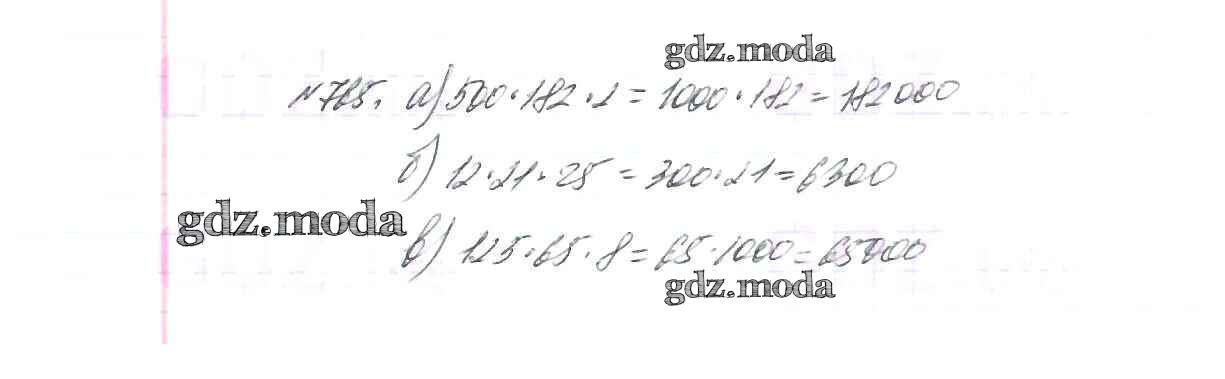 gdz.moda
№765. а) 500·182·2 = 1000·182 = 182000
б) 12·21·25 = 300·21 = 6300
gdz.moda
в) 125·65·8 = 65·1000 = 65000
gdz.moda